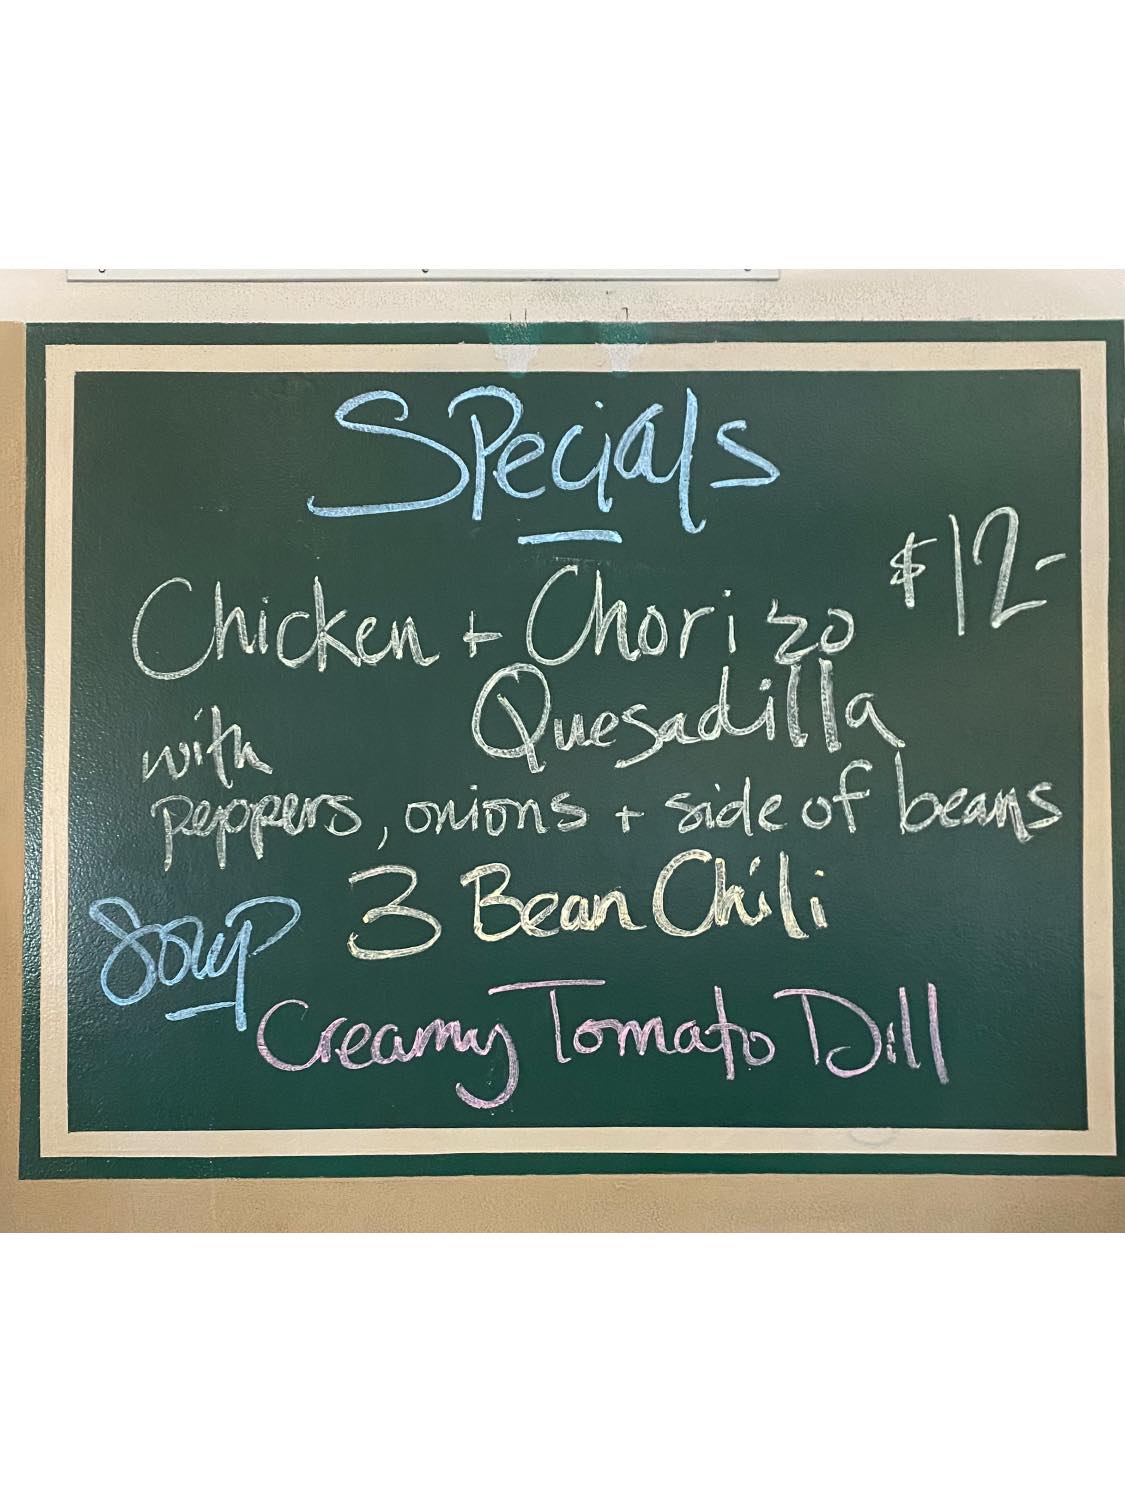 Specials
Chicken + Chorizo $12-
Quesadilla
with
peppers, onions + side of beans
Soup 3 Bean Chili
Creamy Tomato Dill